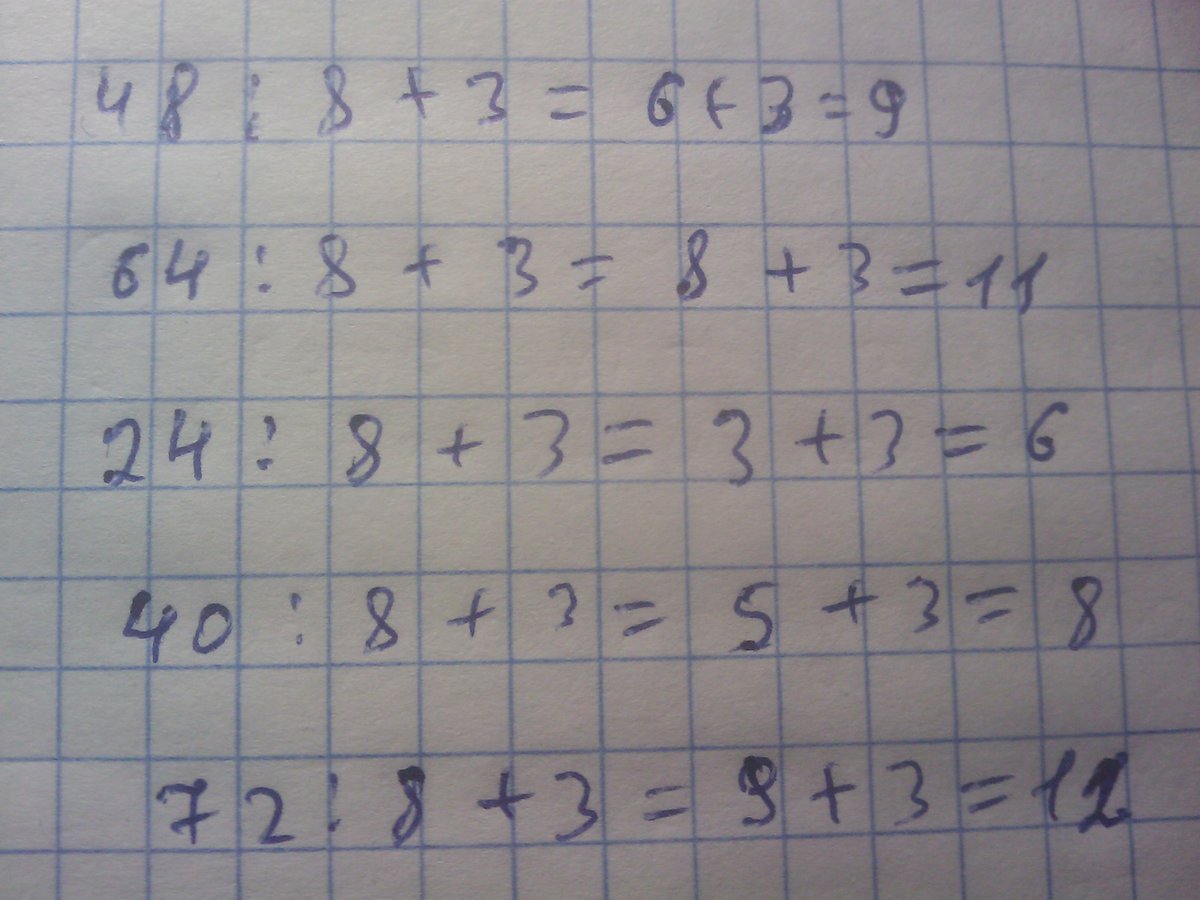 48 : 8 + 3 = 6 + 3 = 9
64 : 8 + 3 = 8 + 3 = 11
24 : 8 + 3 = 3 + 3 = 6
40 : 8 + 3 = 5 + 3 = 8
72 : 8 + 3 = 9 + 3 = 12